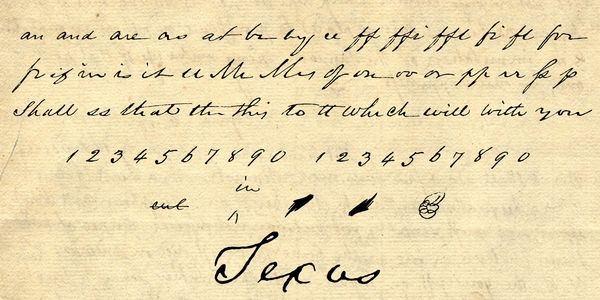 an and are as at be by ee ff ffi ffl fi fl for
fr if in is it ll Mr Mrs of on oo or pp rr
Shall ss that the this to tt which will with you
1 2 3 4 5 6 7 8 9 0 1 2 3 4 5 6 7 8 9 0
in
cut ^
Texas